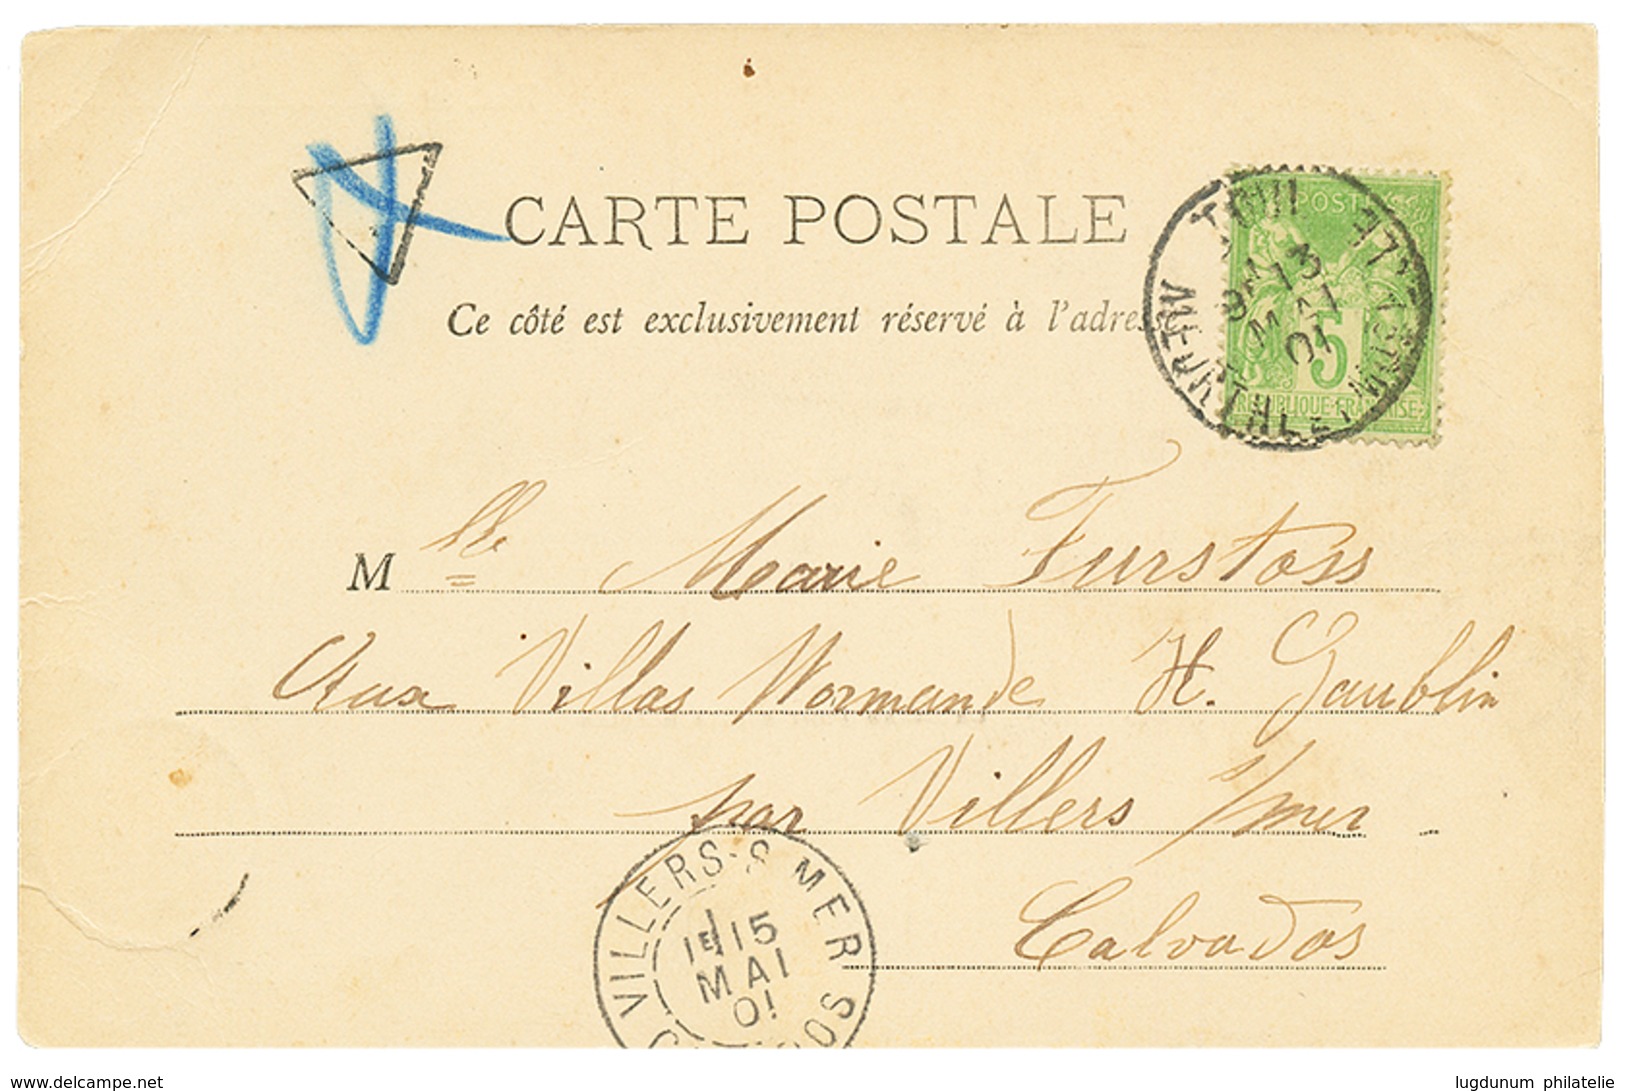 CARTE POSTALE
Ce côté est exclusivement réservé à l'adresse
POSTES
5
REPUBLIQUE FRANÇAISE
TOUL
13
MAI
01
MEURTHE-ET-MOSELLE
Mlle Marie Furstoss
Aux Villas Normande H. Gaublin
par Villers s/mer
Calvados
VILLERS-S-MER
1E 15
MAI
01
www.delcampe.net
lugdunum philatelie